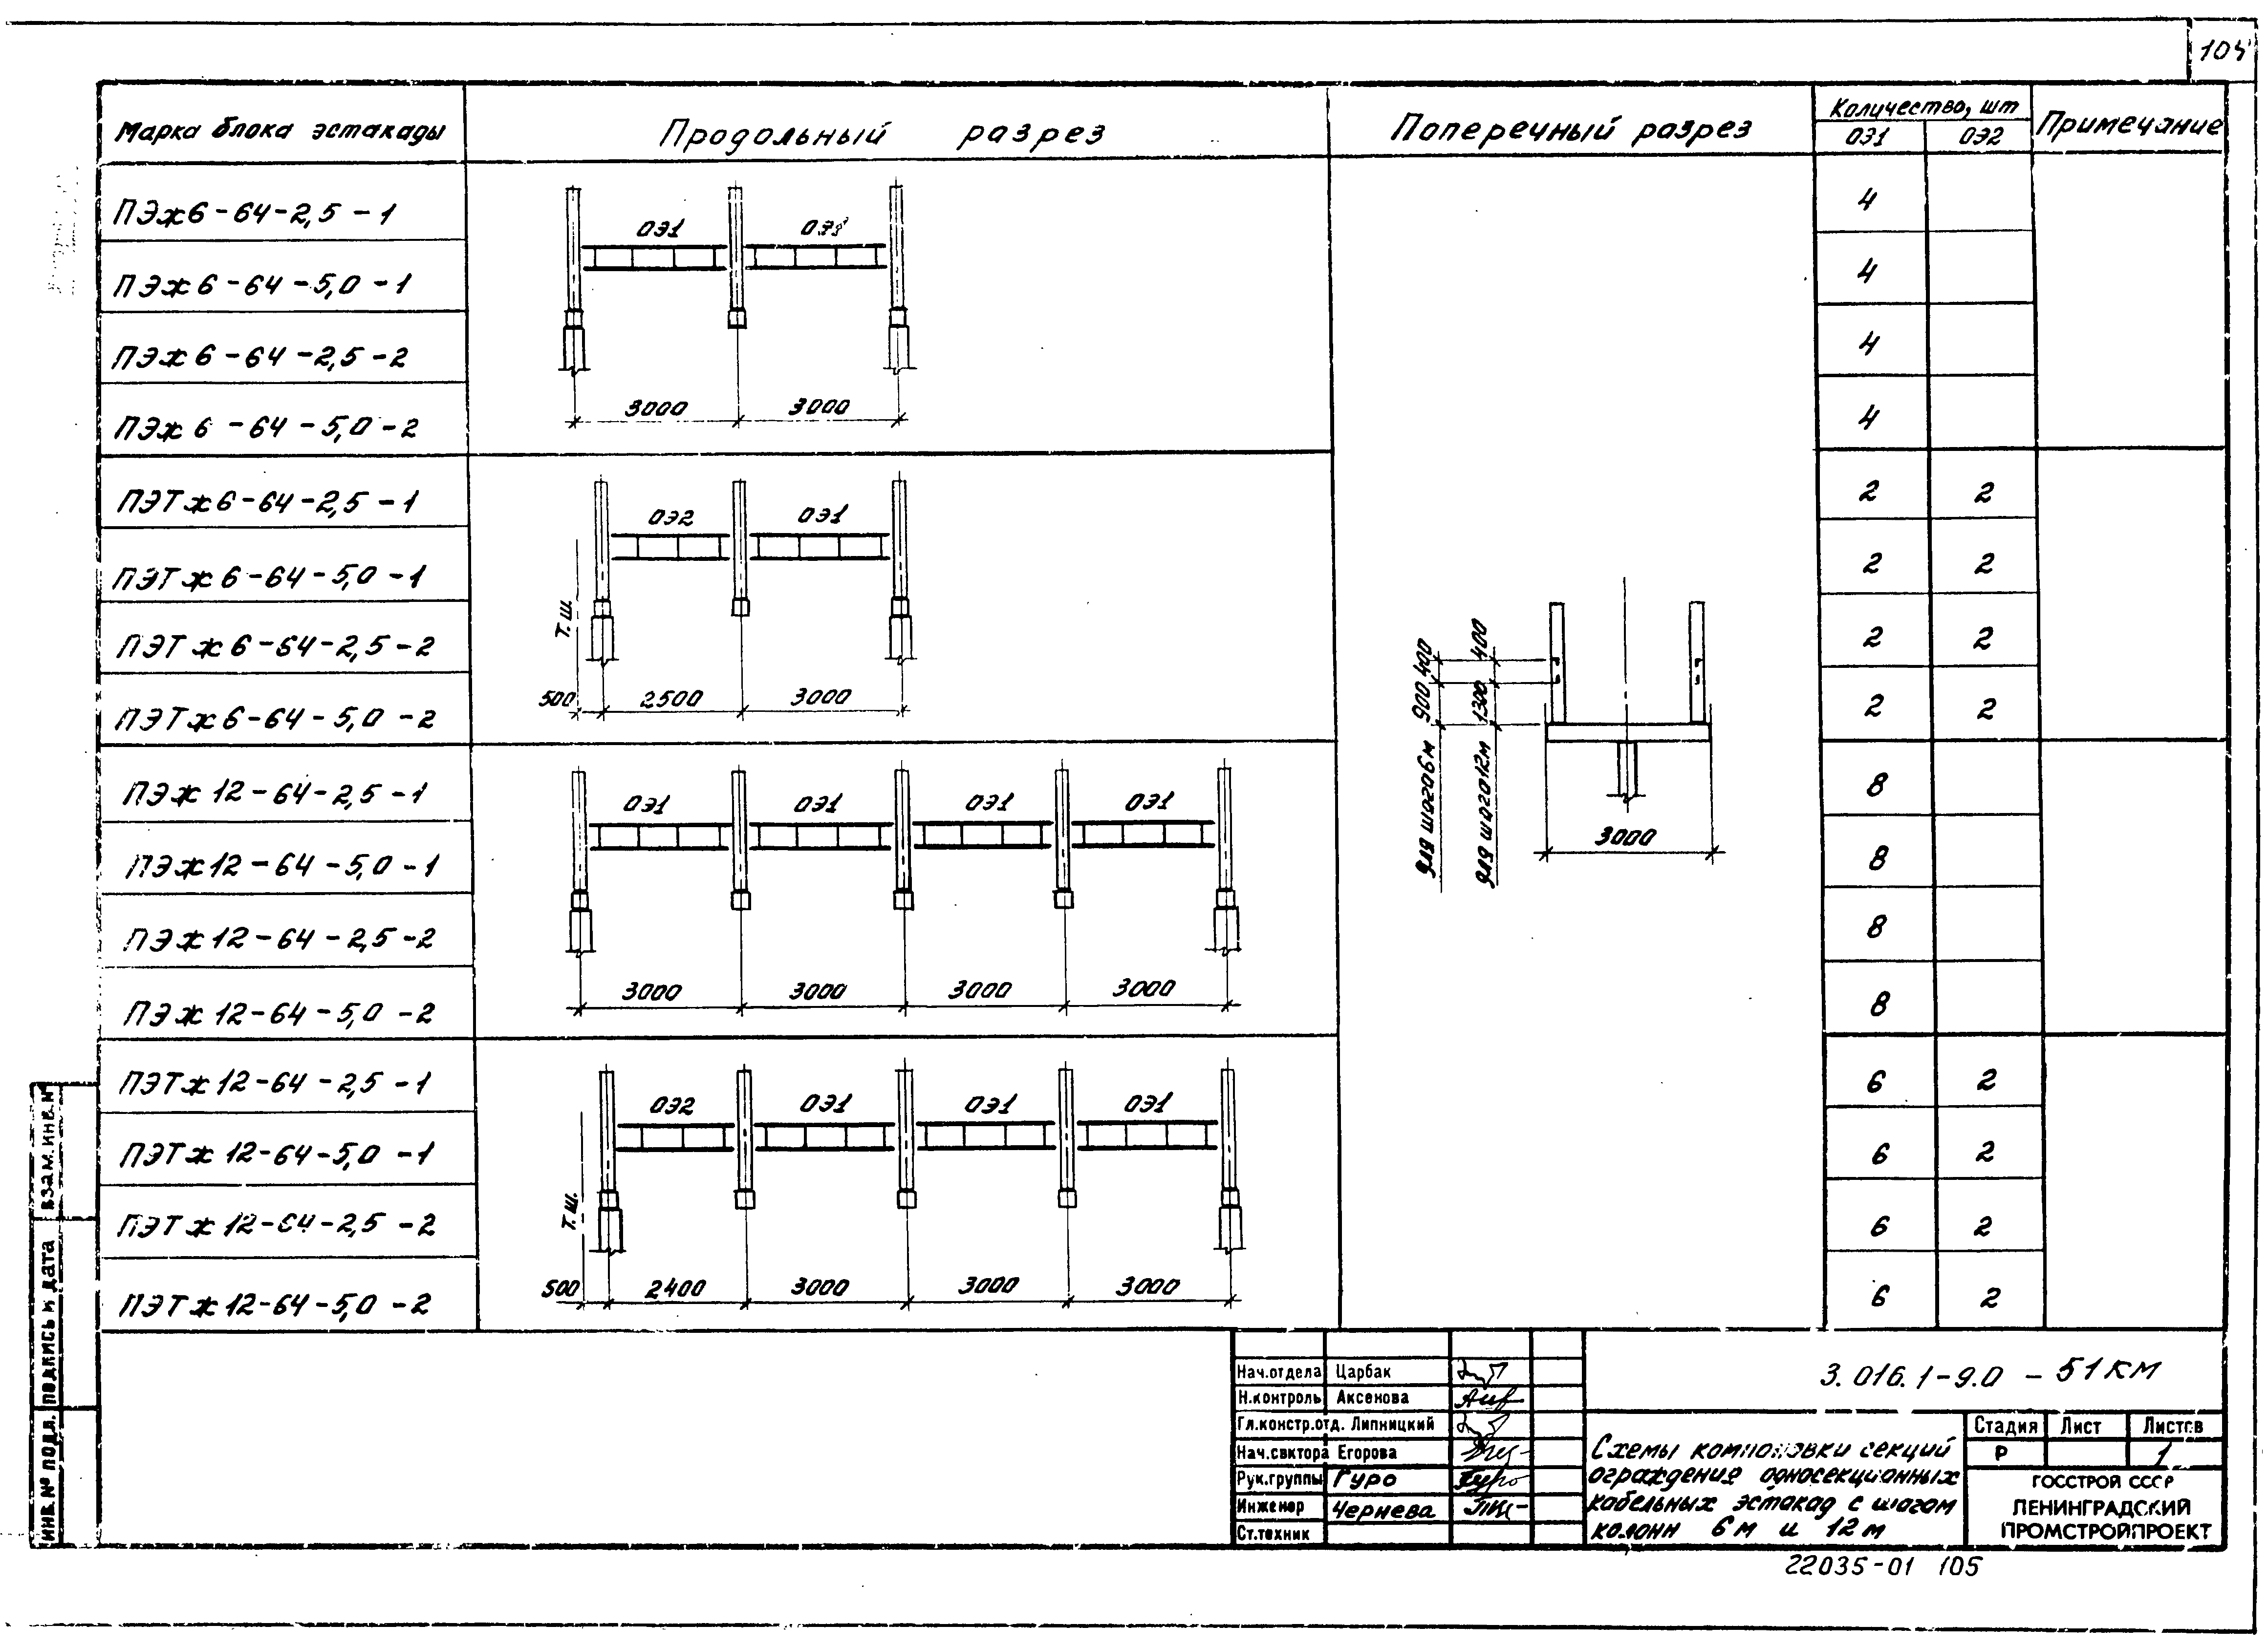 104
Марка блока эстакады
Продольный разрез
Поперечный разрез
Количество, шт
ОЭ1 ОЭ2
Примечание
ПЭж6-64-2,5-1 4
ПЭж6-64-5,0-1 4
ПЭж6-64-2,5-2 4
ПЭж6-64-5,0-2 4
ОЭ1 ОЭ1
3000 3000
ПЭТж6-64-2,5-1 2 2
ПЭТж6-64-5,0-1 2 2
ПЭТж6-64-2,5-2 2 2
ПЭТж6-64-5,0-2 2 2
ОЭ2 ОЭ1
Т.Ш.
500 2500 3000
ПЭж12-64-2,5-1 8
ПЭж12-64-5,0-1 8
ПЭж12-64-2,5-2 8
ПЭж12-64-5,0-2 8
ОЭ1 ОЭ1 ОЭ1 ОЭ1
3000 3000 3000 3000
ПЭТж12-64-2,5-1 6 2
ПЭТж12-64-5,0-1 6 2
ПЭТж12-64-2,5-2 6 2
ПЭТж12-64-5,0-2 6 2
ОЭ2 ОЭ1 ОЭ1 ОЭ1
Т.Ш.
500 2400 3000 3000 3000
для шага 6м 900 400
для шага 12м 1300 400
3000
ИНВ.№ ПОДЛ. ПОДПИСЬ И ДАТА ВЗАМ.ИНВ.№
Нач.отдела Царбак
Н.контроль Аксенова
Гл.констр.отд. Липницкий
Нач.сектора Егорова
Рук.группы Гуро
Инженер Чернева
Ст.техник
3.016.1-9.0-51КМ
Схемы компоновки секций
ограждения односекционных
кабельных эстакад с шагом
колонн 6м и 12м
Стадия Лист Листов
Р 1
ГОССТРОЙ СССР
ЛЕНИНГРАДСКИЙ
ПРОМСТРОЙПРОЕКТ
22035-01 105